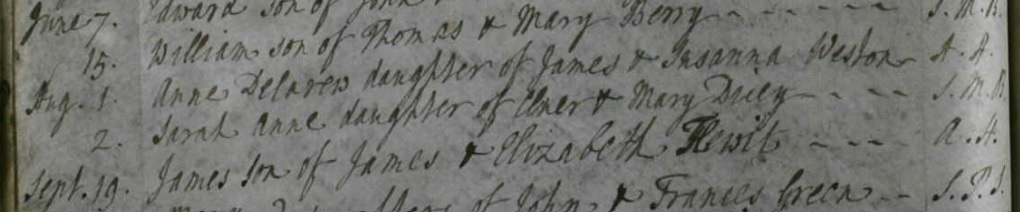 June 7. Edward son of John
15. William son of Thomas & Mary Berry - - - - - - S.M.R.
Aug. 1. Anne Delarew daughter of James & Susanna Weston A. A.
2. Sarah Anne daughter of & Mary Ducy - - - - S.M.R.
Sept. 19. James son of James & Elizabeth Hewit - - - - A. A.
of John & Frances Green - - S.P.S.